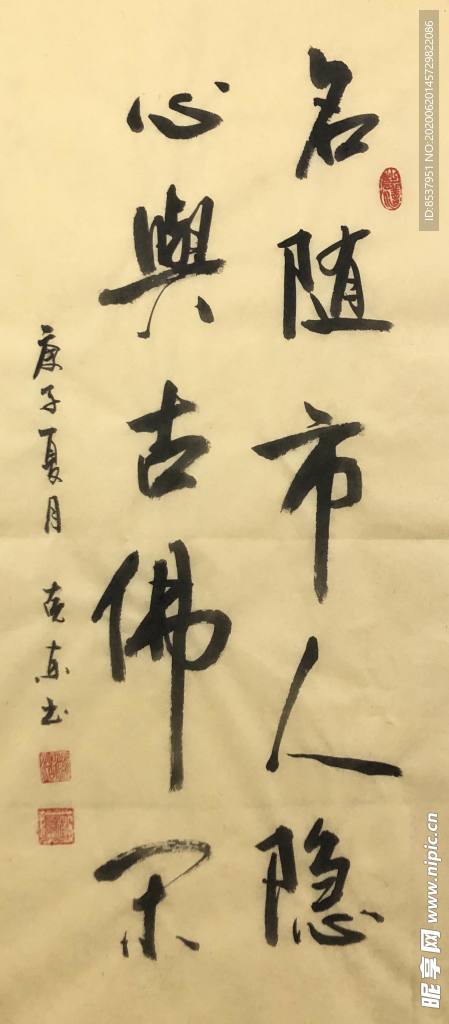 名随市人隐
心與古佛闲
庚子夏月 克东书
ID:8537951 NO:20200620145729822086
昵享网 www.nipic.cn